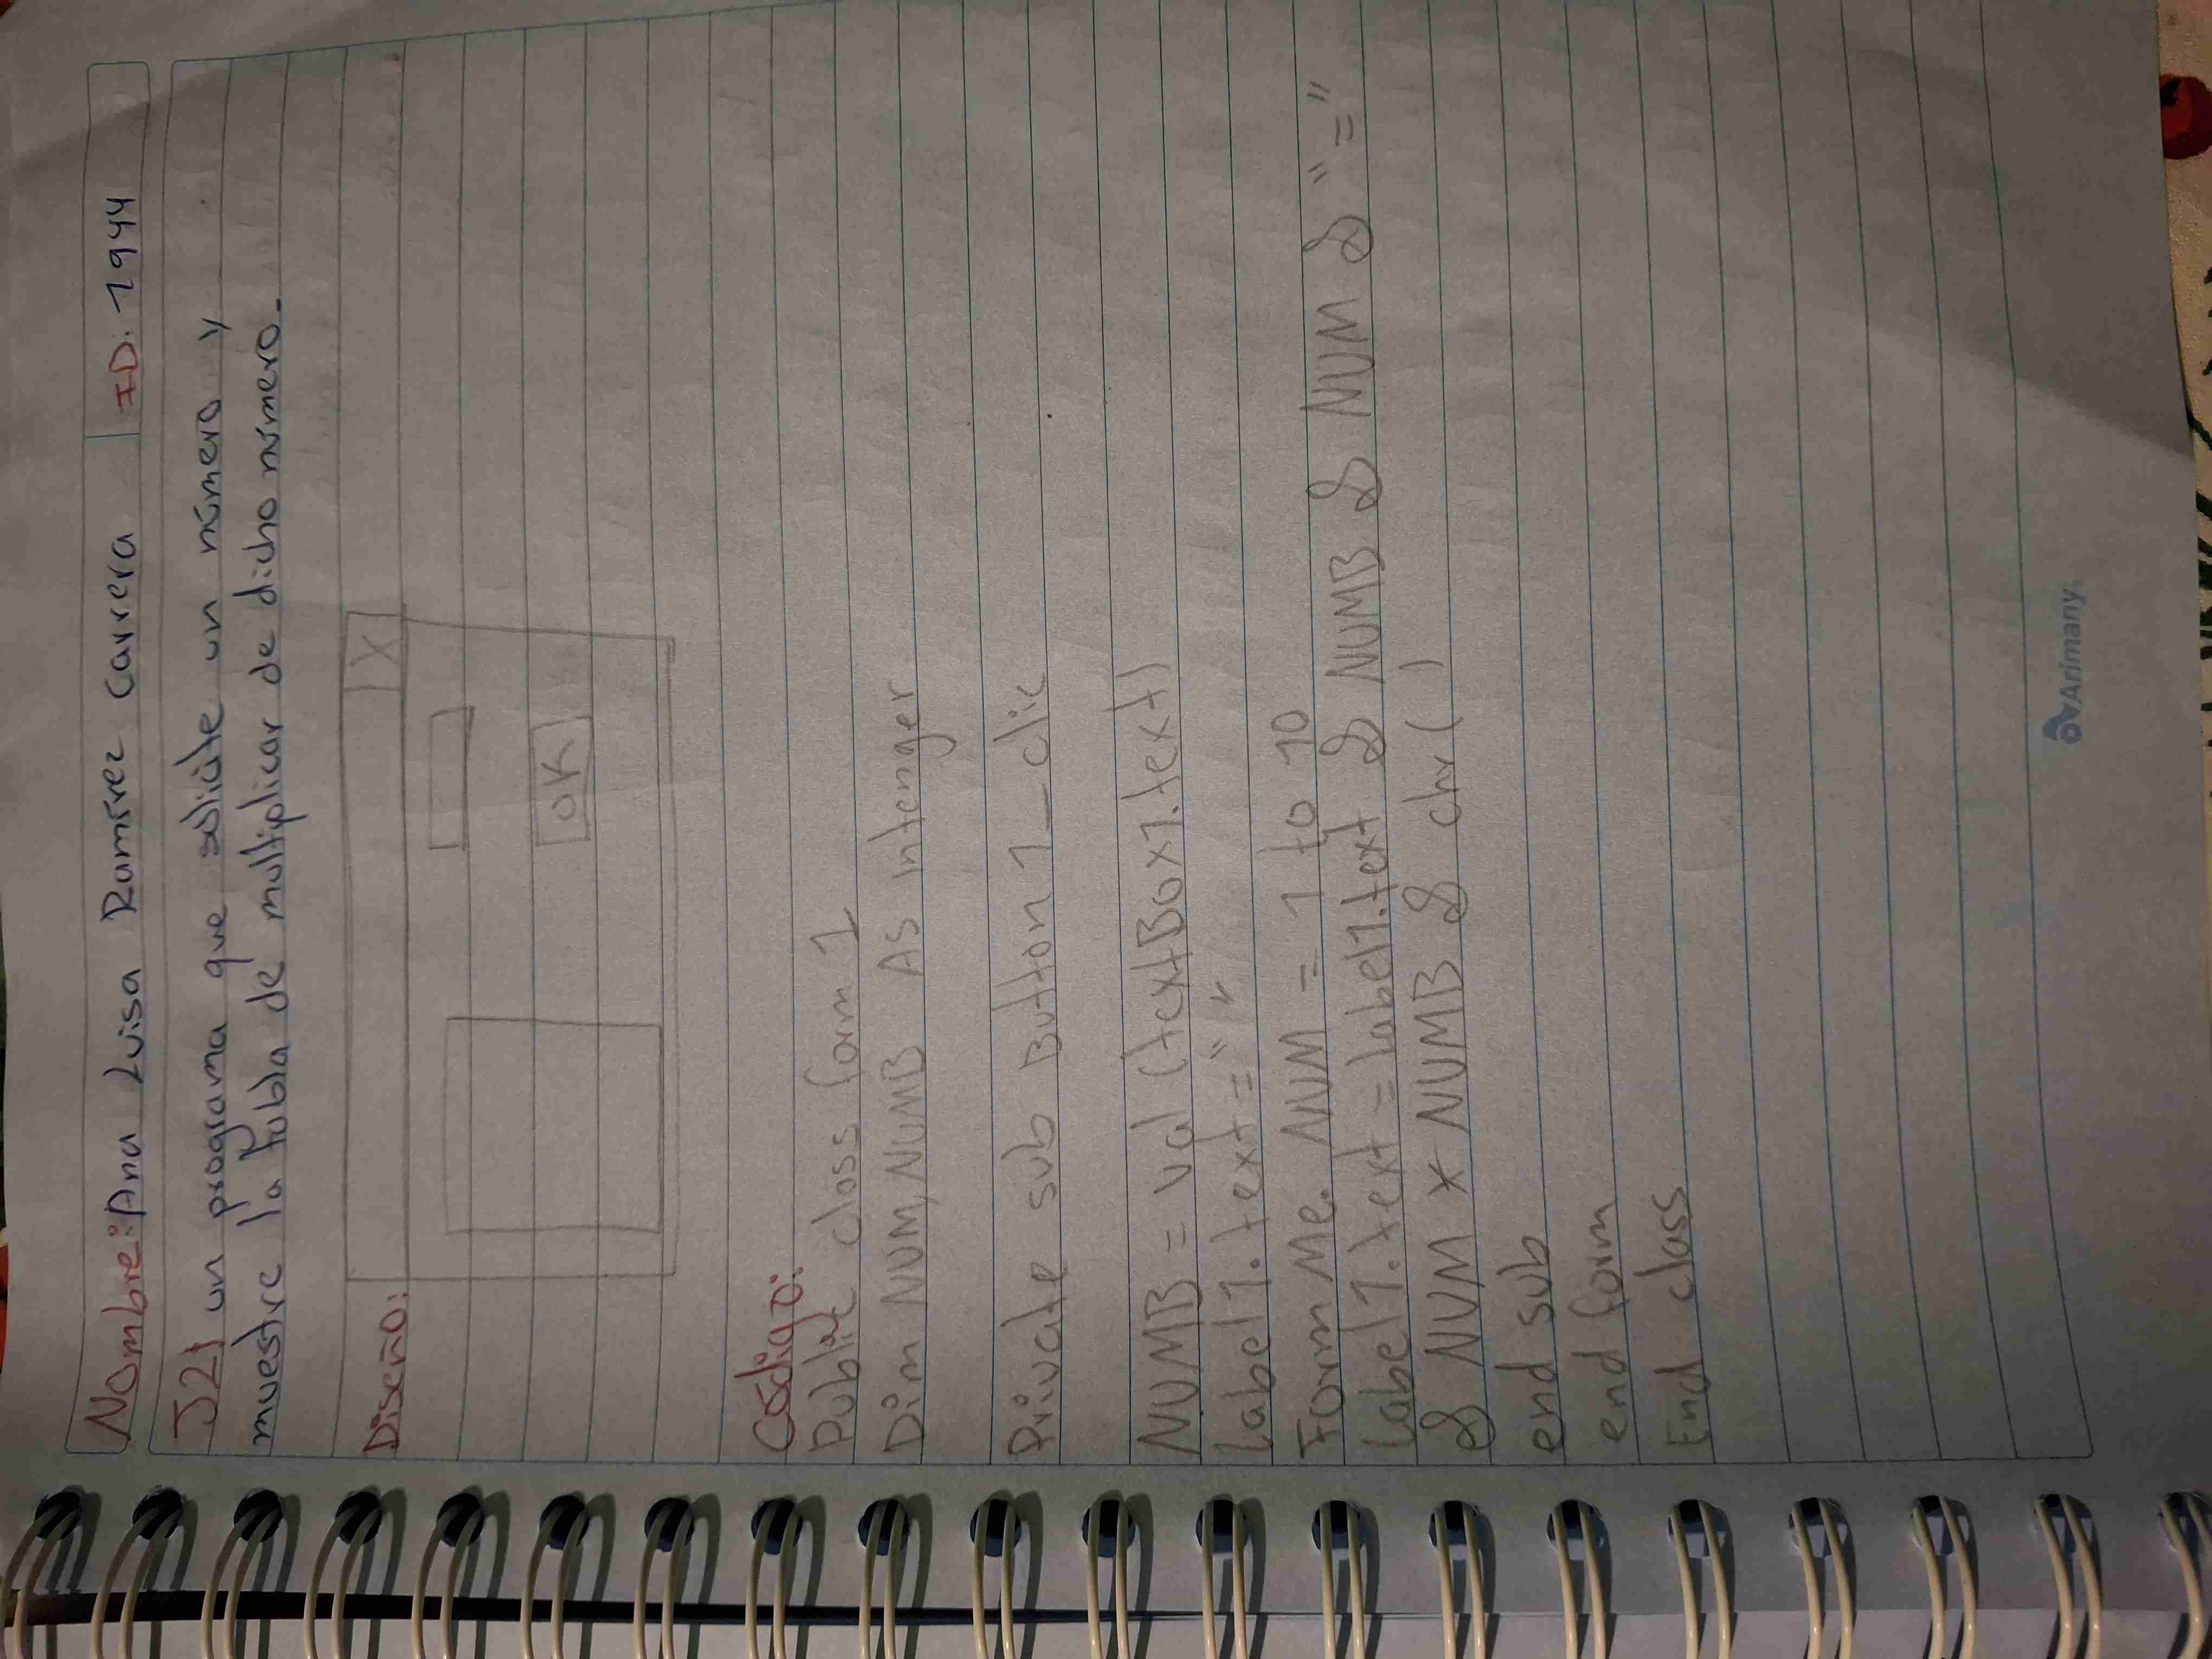 Nombre: Ana Luisa Ramírez Carrera ID: 1944
J2) un programa que solicite un número y
muestre la tabla de multiplicar de dicho número.
Diseño:
X
OK
Código:
Public class form 1
Dim NUM, NUMB As intenger
Private sub Button 1_clic
NUMB = val (textBox1.text)
Label1.text = " "
Form Me. NUM = 1 to 10
Label1.text = label1.text & NUMB & NUM & "="
& NUM * NUMB & chr( )
end sub
end form
End class
Arimany